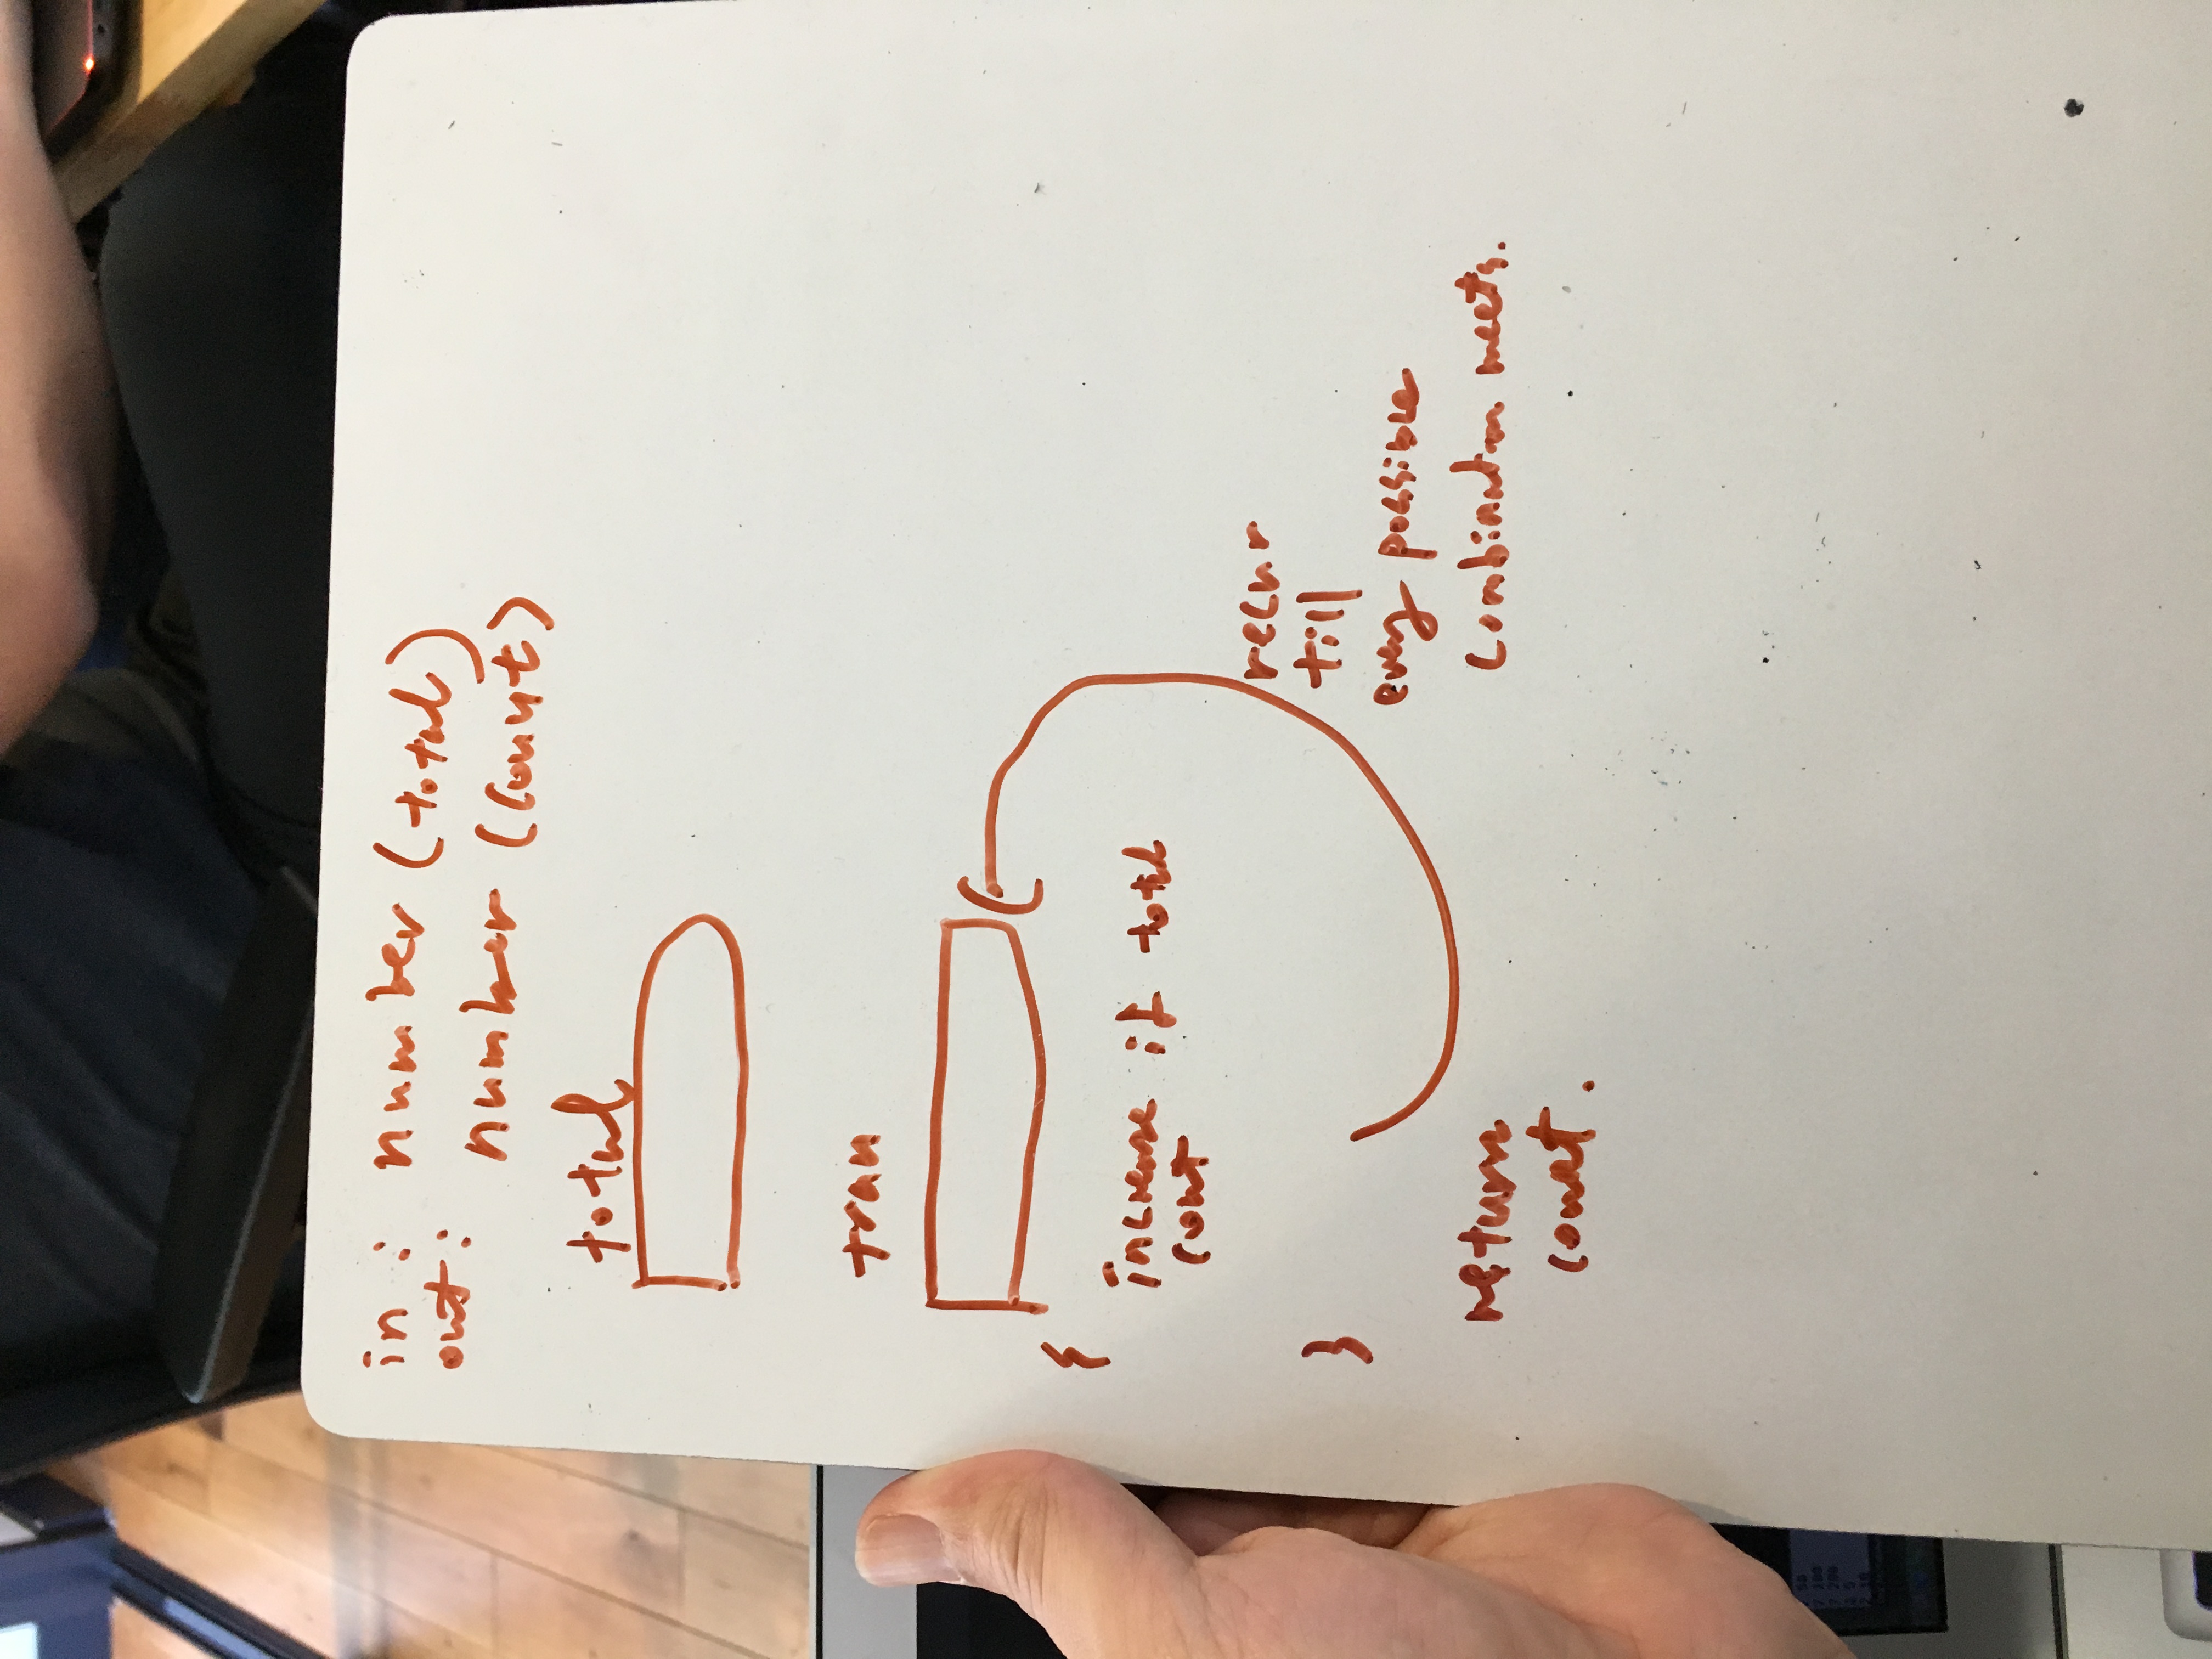 in : number (total)
out : number (count)
total
tran
{
increase if total
count
}
recur
till
every possible
combination meets.
return
count.
50
200
200